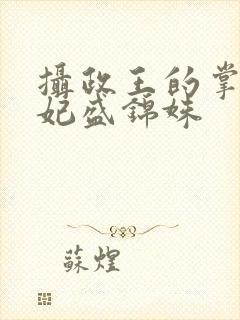 攝政王的掌
妃盛錦姝
蘇煌